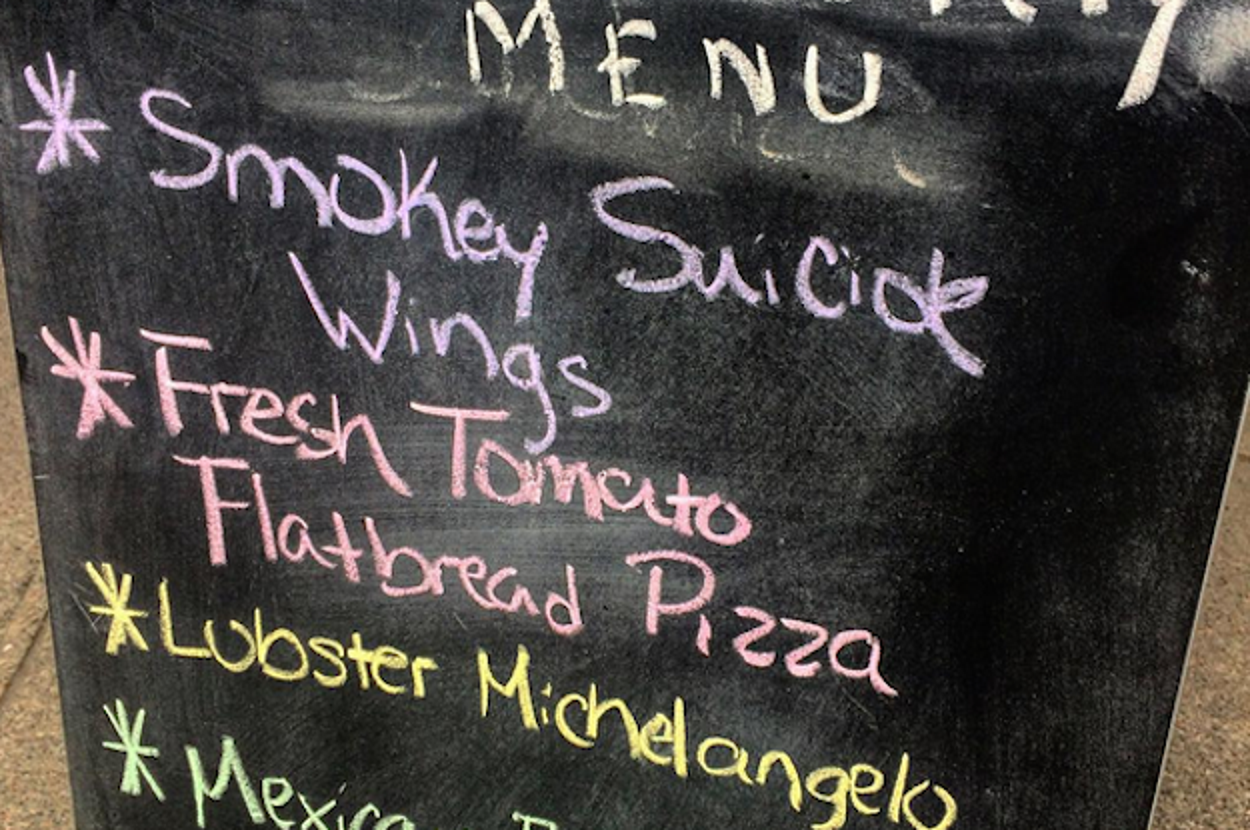 MENU
* Smokey Suicide
Wings
* Fresh Tomato
Flatbread Pizza
* Lobster Michelangelo
* Mexica